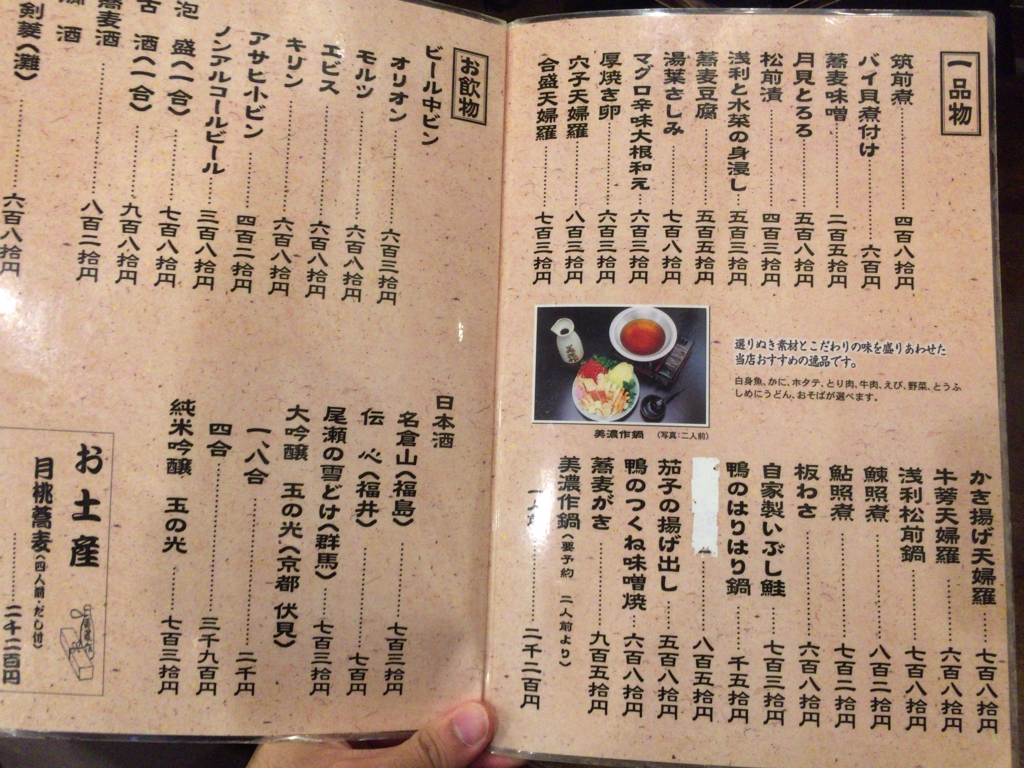 一品物
筑前煮 四百八拾円
バイ貝煮付け 六百円
蕎麦味噌 二百五拾円
月見とろろ 五百八拾円
松前漬 四百三拾円
浅利と水菜の身浸し 五百三拾円
蕎麦豆腐 五百五拾円
湯葉さしみ 七百八拾円
マグロ辛味大根和え 六百三拾円
厚焼き卵 六百三拾円
穴子天婦羅 八百三拾円
合盛天婦羅 七百三拾円
選りぬき素材とこだわりの味を盛りあわせた
当店おすすめの逸品です。
白身魚、かに、ホタテ、とり肉、牛肉、えび、野菜、とうふ
しめにうどん、おそばが選べます。
美濃作鍋 (写真:二人前)
かき揚げ天婦羅 七百八拾円
牛蒡天婦羅 六百八拾円
浅利松前鍋 七百八拾円
鰊照煮 八百二拾円
鮎照煮 七百二拾円
板わさ 六百八拾円
自家製いぶし鮭 七百三拾円
鴨のはりはり鍋 千五拾円
八百五拾円
茄子の揚げ出し 五百八拾円
鴨のつくね味噌焼 六百八拾円
蕎麦がき 九百五拾円
美濃作鍋(要予約 二人前より)
二千二百円
お飲物
ビール中ビン
オリオン 六百三拾円
モルツ 六百八拾円
エビス 六百八拾円
キリン 六百八拾円
アサヒ小ビン 四百二拾円
ノンアルコールビール 三百八拾円
泡 盛(一合) 七百八拾円
古 酒(一合) 九百八拾円
蕎麦酒 八百二拾円
酒
剣菱(灘) 六百八拾円
日本酒
名倉山(福島) 七百三拾円
伝 心(福井) 七百円
尾瀬の雪どけ(群馬) 七百三拾円
大吟醸 玉の光(京都 伏見)
一、八合 二千円
四合 三千九百円
純米吟醸 玉の光 七百三拾円
お土産
月桃蕎麦(四人前・だし付)
二千二百円